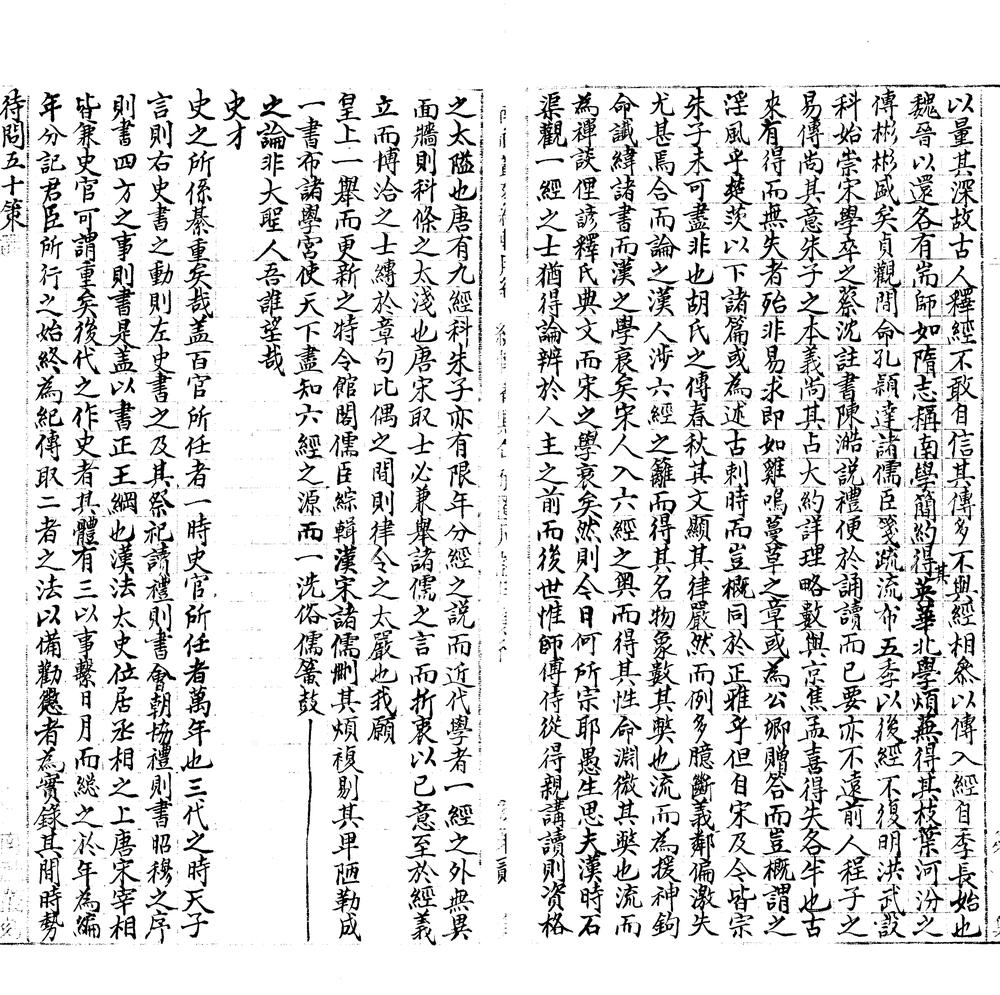 以量其深故古人釋經不敢自信其傳多不與經相叅以傳入經自季長始也
魏晉以還各有耑師如隋志稱南學簡約得其英華北學煩蕪得其枝葉河汾之
傳彬彬盛矣貞觀間命孔穎達諸儒臣箋疏流布五季以後經不復明洪武設
科始崇宋學卒之蔡沈註書陳澔説禮便於誦讀而已要亦不遠前人程子之
易傳尚其意朱子之本義尚其占大約詳理略數與京焦孟喜得失各半也古
來有得而無失者殆非易求即如雞鳴蔓草之章或為公卿贈答而豈概謂之
淫風乎楚茨以下諸篇或為述古刺時而豈概同於正雅乎但自宋及今皆宗
朱子未可盡非也胡氏之傳春秋其文顯其律嚴然而例多臆斷義鄰偏激失
尤甚焉合而論之漢人涉六經之籬而得其名物象數其獘也流而為援神鉤
命讖緯諸書而漢之學衰矣宋人入六經之奧而得其性命淵微其獘也流而
為禪談俚諺釋氏典文而宋之學衰矣然則今日何所宗耶愚生思夫漢時石
渠觀一經之士猶得論辨於人主之前而後世惟師傅侍從得親講讀則資格
之太隘也唐有九經科朱子亦有限年分經之説而近代學者一經之外無異
面牆則科條之太淺也唐宋取士必兼舉諸儒之言而折衷以已意至於經義
立而博洽之士縛於章句比偶之間則律令之太嚴也我願
皇上一舉而更新之特令館閣儒臣綜輯漢宋諸儒刪其煩複剔其卑陋勒成
一書布諸學宮使天下盡知六經之源而一洗俗儒籥鼓
之論非大聖人吾誰望哉
史才
史之所係綦重矣哉盖百官所任者一時史官所任者萬年也三代之時天子
言則右史書之動則左史書之及其祭祀讀禮則書會朝協禮則書昭穆之序
則書四方之事則書是盖以書正王綱也漢法太史位居丞相之上唐宋宰相
皆兼史官可謂重矣後代之作史者其體有三以事繫日月而緫之於年為編
年分記君臣所行之始終為紀傳取二者之法以備勸懲者為實錄其間時勢
待問五十策